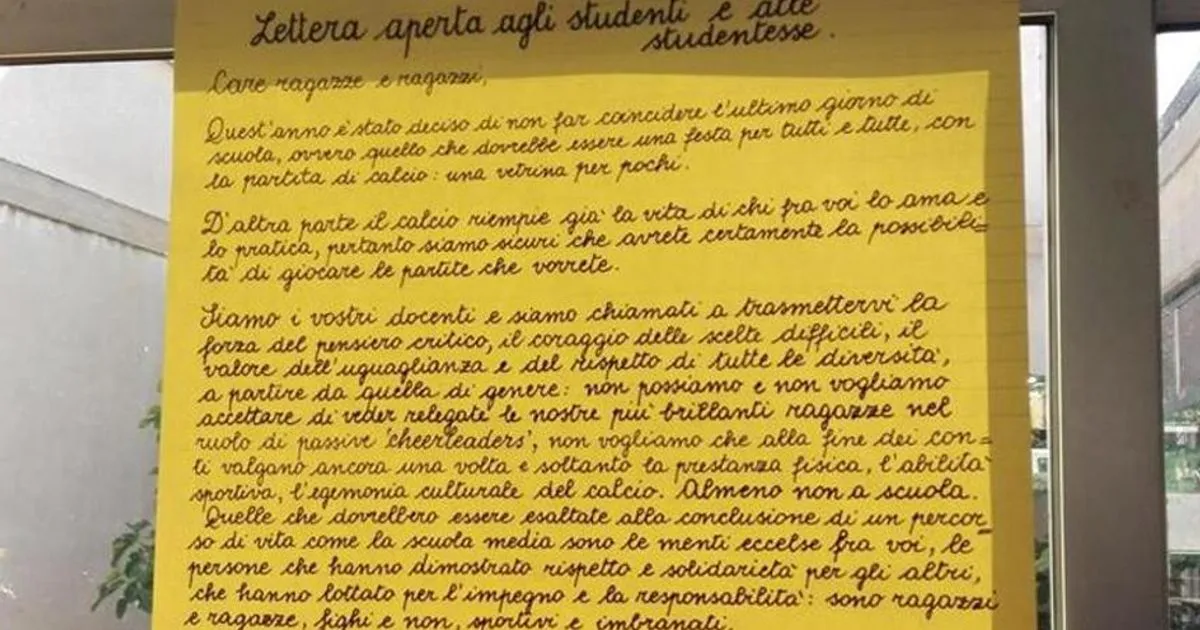 Lettera aperta agli studenti e alle
studentesse.
Care ragazze e ragazzi,
Quest'anno è stato deciso di non far coincidere l'ultimo giorno di
scuola, ovvero quello che dovrebbe essere una festa per tutti e tutte, con
la partita di calcio: una vetrina per pochi.
D'altra parte il calcio riempie già la vita di chi fra voi lo ama e
lo pratica, pertanto siamo sicuri che avrete certamente la possibili=
tà di giocare le partite che vorrete.
Siamo i vostri docenti e siamo chiamati a trasmettervi la
forza del pensiero critico, il coraggio delle scelte difficili, il
valore dell'uguaglianza e del rispetto di tutte le diversità,
a partire da quella di genere: non possiamo e non vogliamo
accettare di veder relegate le nostre più brillanti ragazze nel
ruolo di passive 'cheerleaders', non vogliamo che alla fine dei con=
ti valgano ancora una volta e soltanto la prestanza fisica, l'abilità
sportiva, l'egemonia culturale del calcio. Almeno non a scuola.
Quelle che dovrebbero essere esaltate alla conclusione di un percor=
so di vita come la scuola media sono le menti eccelse fra voi, le
persone che hanno dimostrato rispetto e solidarietà per gli altri,
che hanno lottato per l'impegno e la responsabilità: sono ragazzi
e ragazze, fighi e non, sportivi e imbranati.